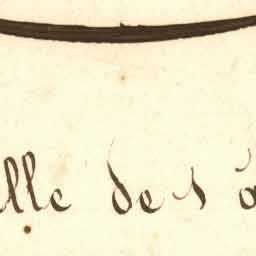 lle des à